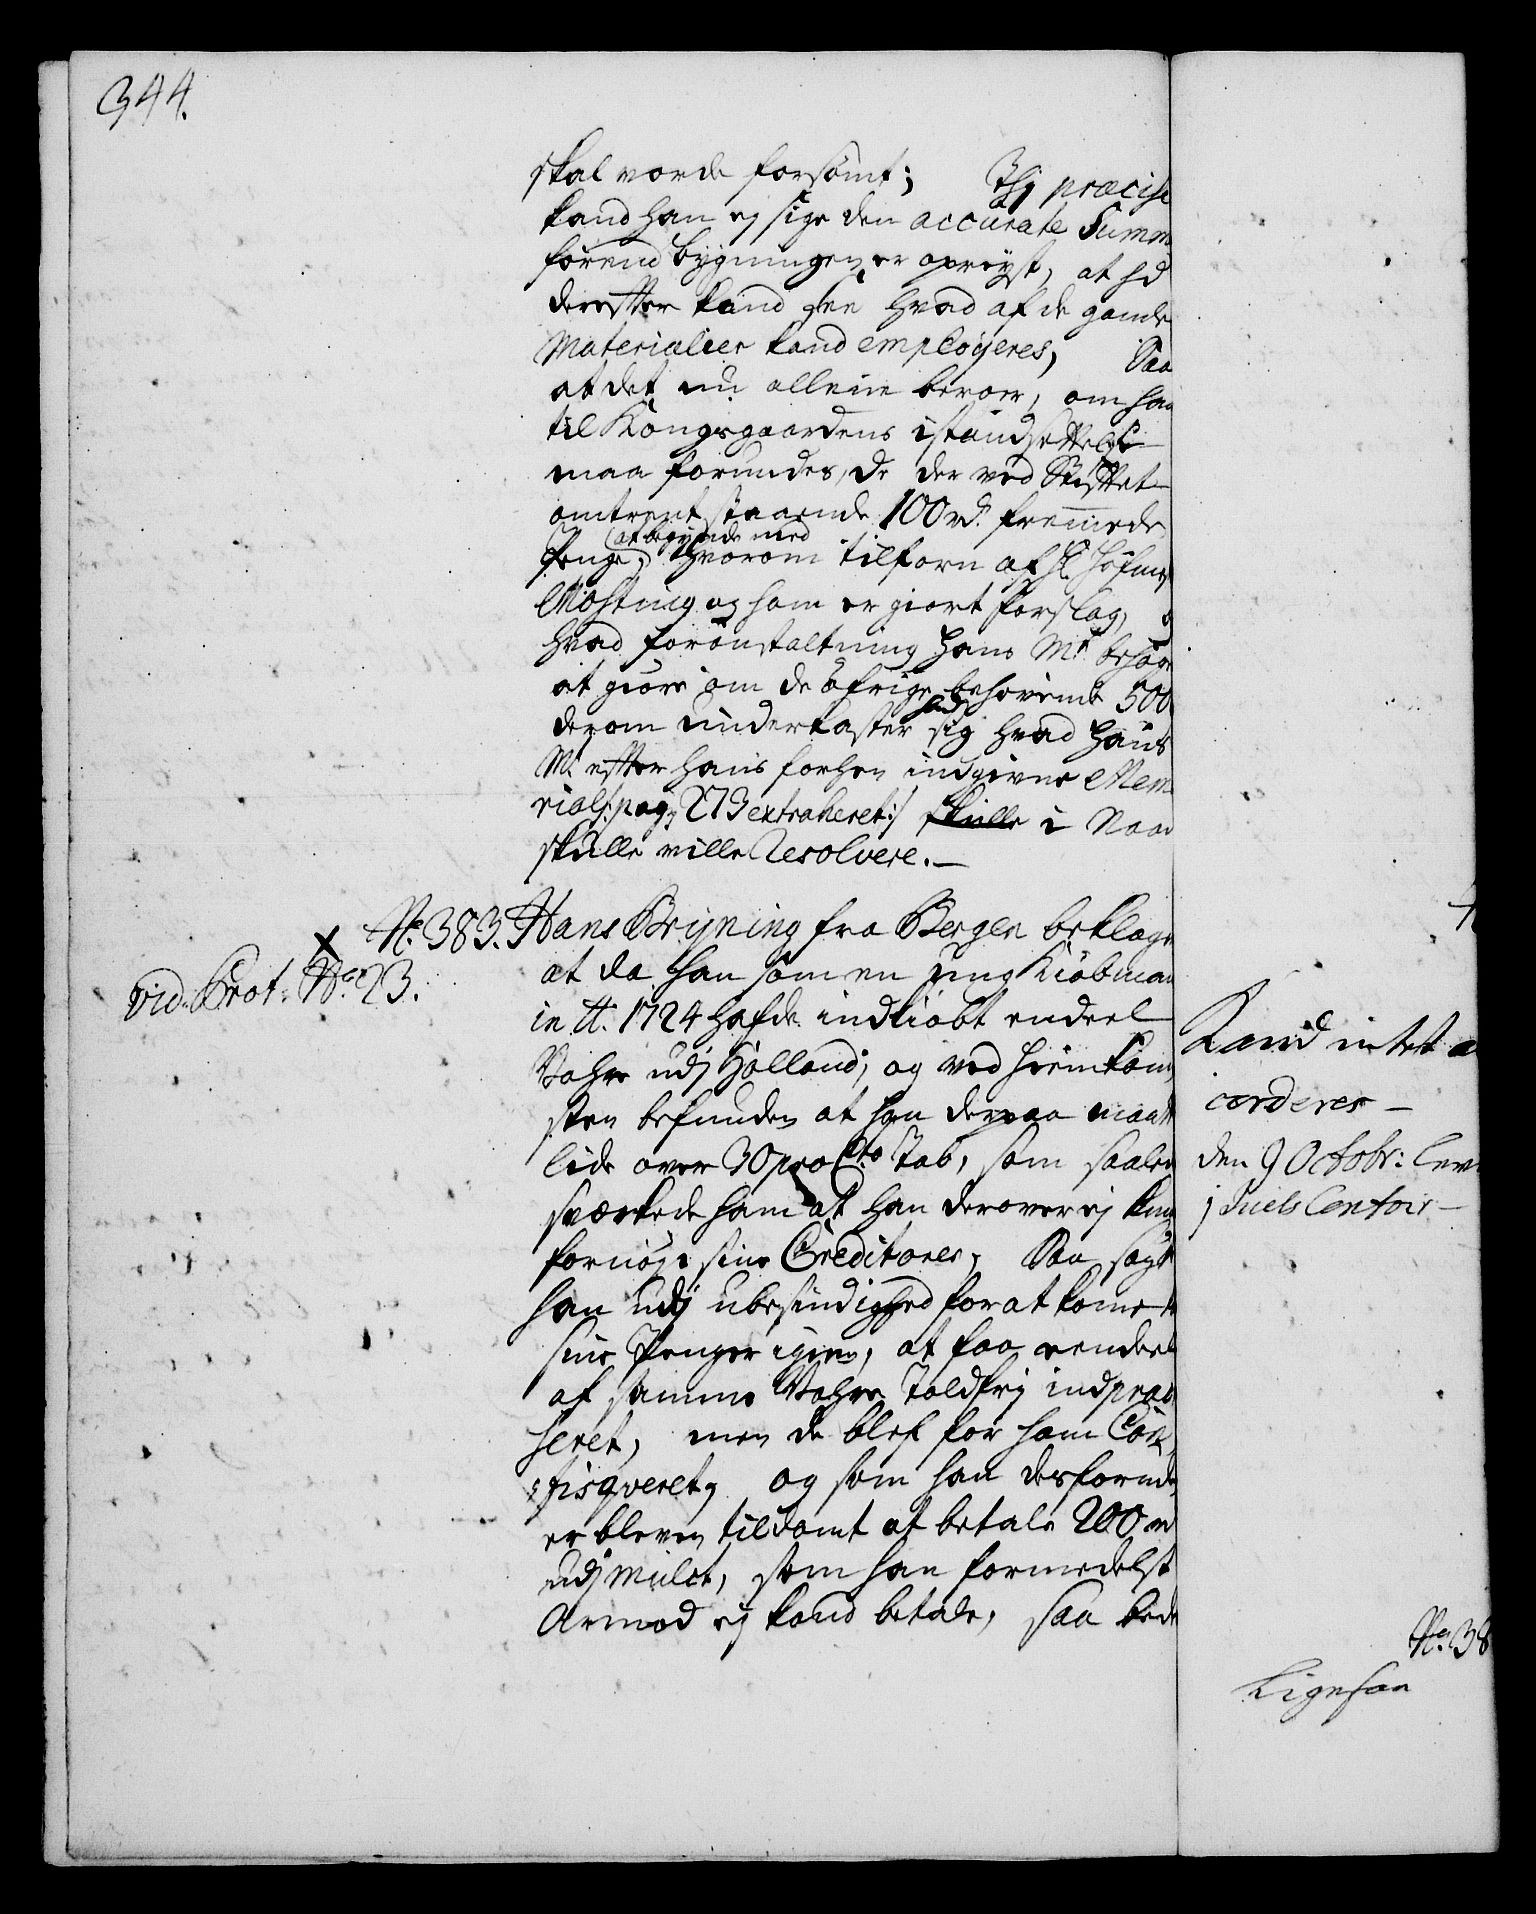 344.
skal vorde forsømt; Thj præcise
kand han ej sige den accurate Summ
førend bygningen er opreyst, at hd
derefter kand see hvad af de gamle
Materialier kand employeres, Saa
at det nu alleene beroer, om han
til Kongsgaardens istandsettelse
maa forundes, de der ved Stiftet
omtrent staaende 100 rd. fremmede
(at begynde med
Penge; hvorom tilforn af Hr. Hofm
Møsting og ham er giort forslag, og
hvad foranstaltning Hans Mt. behage
at giøre om de øfrige behøvende 500
hand
derom underkaster sig hvad Hans
Mt. efter hans forhen indgivne Mem
rial /: pag. 273 extraheret :/ skulle i Naad
skulle ville Resolvere. —
No. 383. Hans Bryning fra Bergen beklage
X
vid. Prot: No. 23.
at da han som en ung Kiøbman
in Ao. 1724 hafde indkiøbt endeel
Vahre udj Holland, og ved hiemkom
sten befunden at han derpaa maatt
lide over 30 pro Cto Tab, som saaled
sværkede ham at han derover ej kun
fornøje sine Creditorer, Saa søgt
han udj ubesindighed for at komme t
sine Penger igien, at faa eendeel
af samme Vahre Toldfrj indprac
seret, men de blef for ham Con
fisqveret, og som han desforude
er bleven tildømt at betale 200 rd
udj Mulct, som han formedelst
Armod ej kand betale, saa bede
Kand intet a
corderes —
den 9 Octobr: lev
j Juels Contoir —
No. 38
Ligesaa